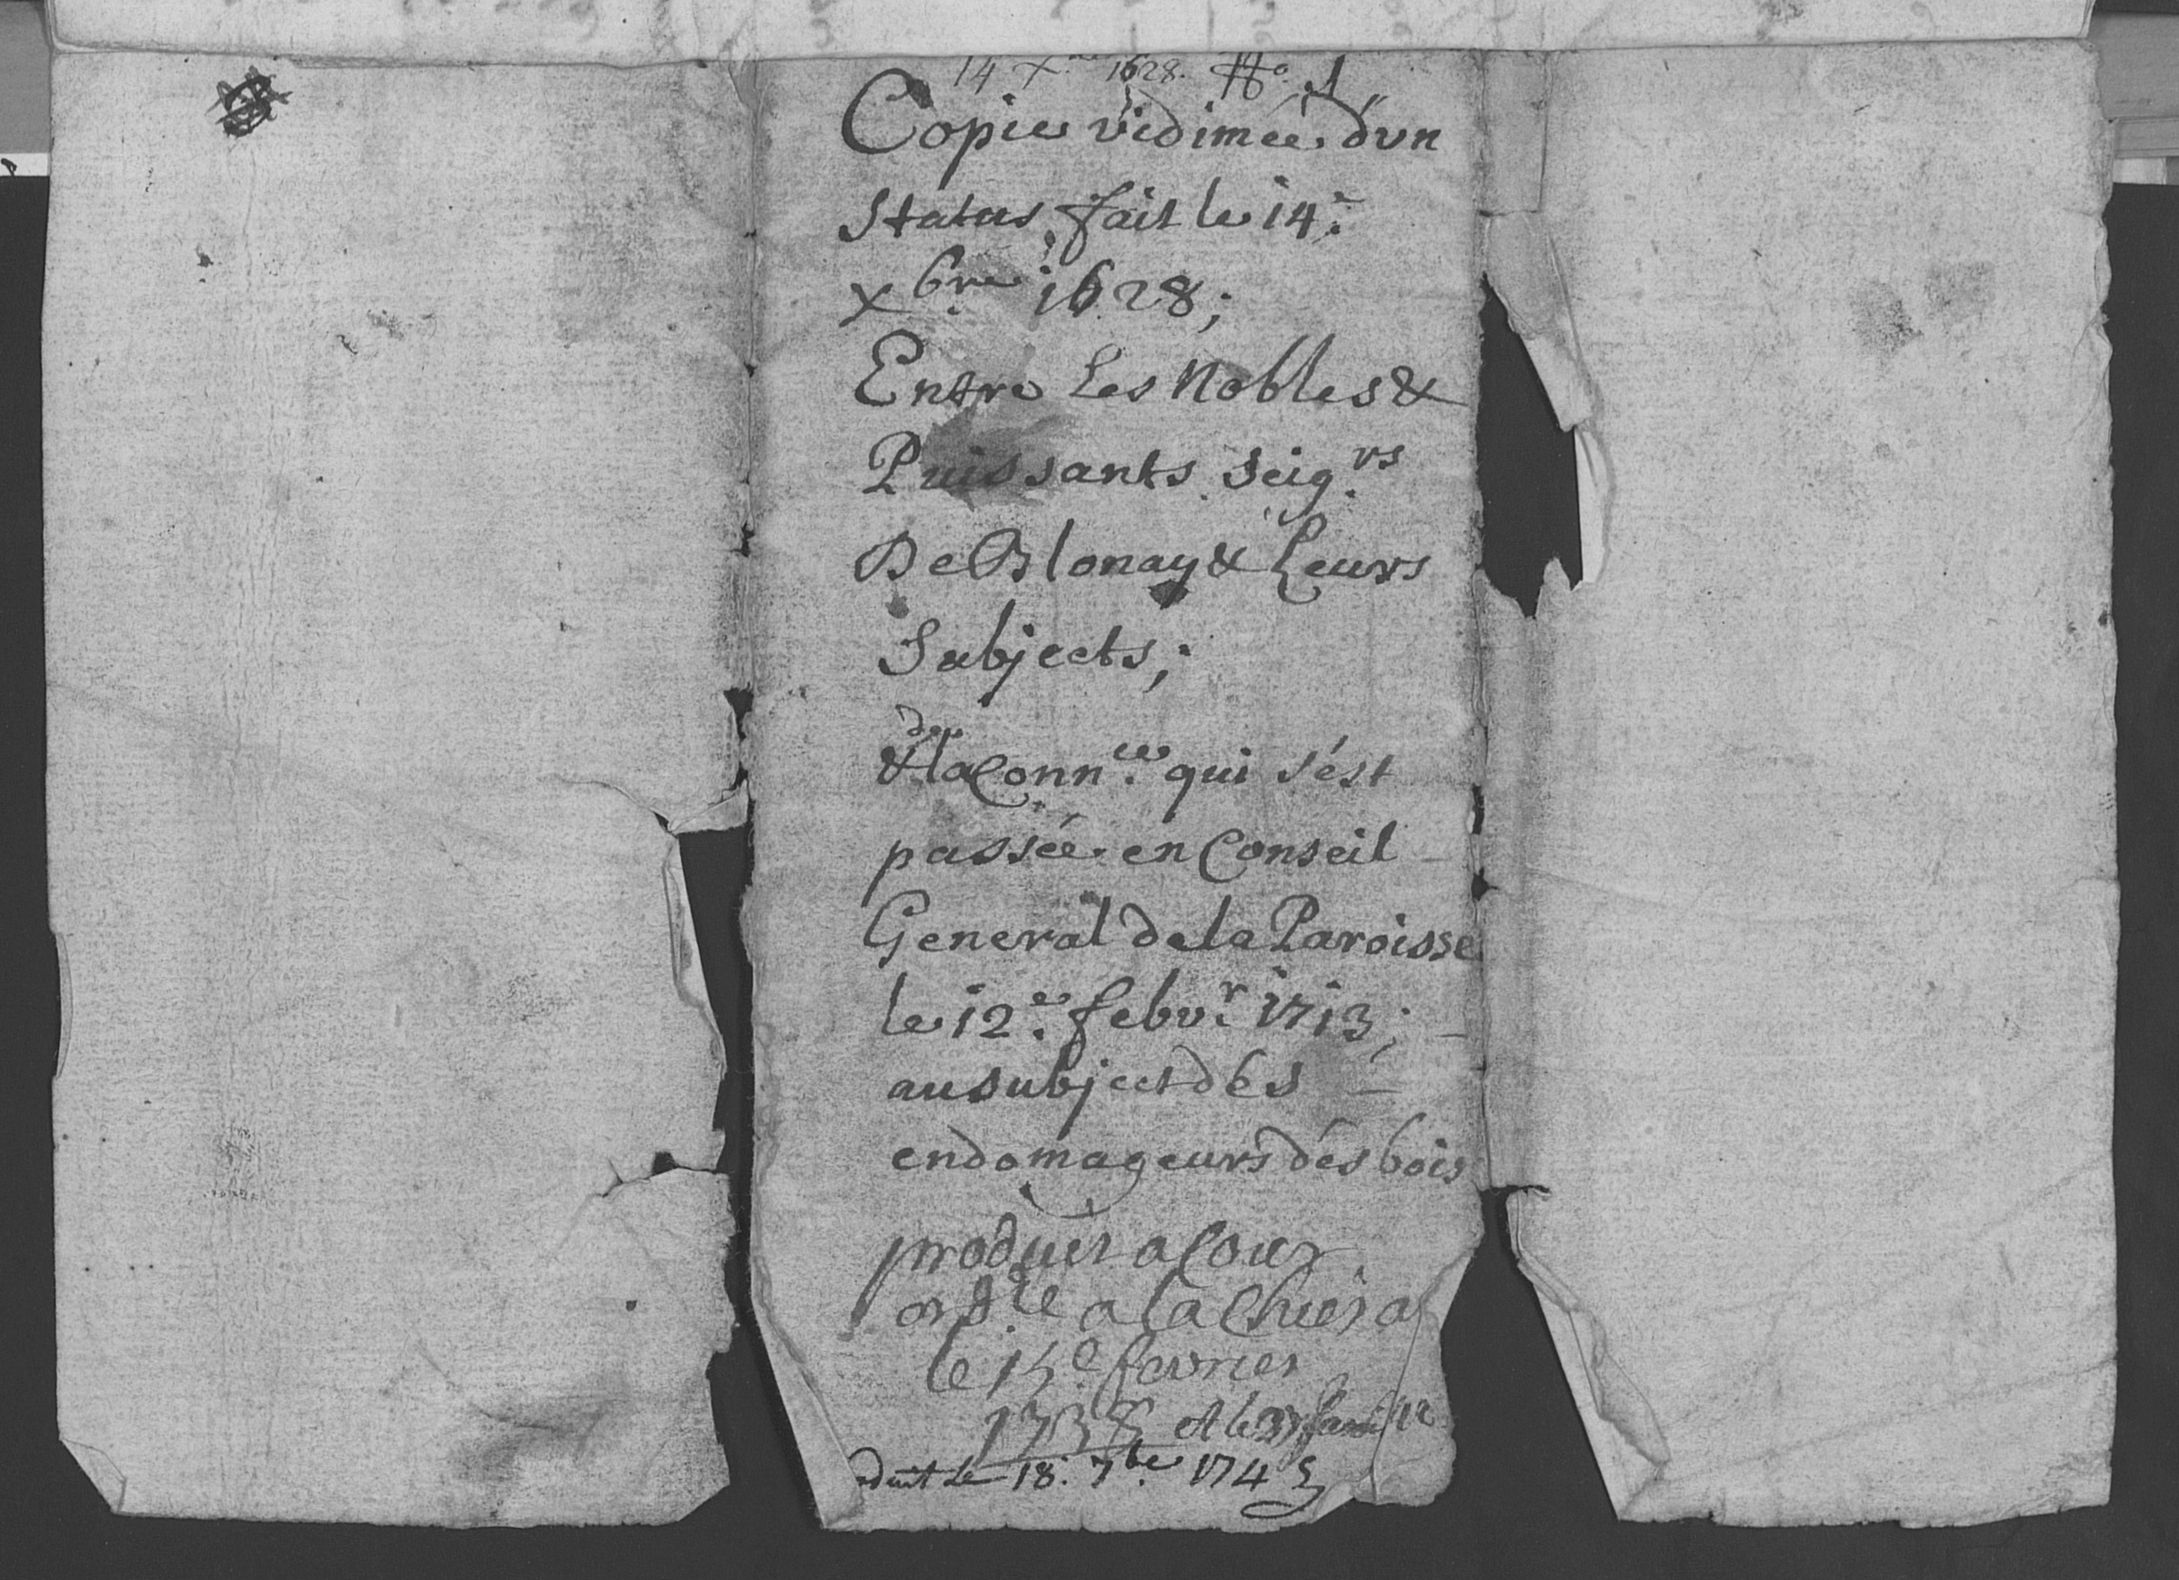 14 Xbre 1628. No. 1
Copie vidimée d'vn
Status fait le 14e.
Xbre. 1628;
Entre Les Nobles &
Puissants Seigrs.
De Blonay & Leurs
Subjects;
de
& la Connce. qui s'ést
passée en Conseil
General de la Paroisse
le 12e. febvr. 1713;
au subject dés
endomageurs dés bois
produit a Cour
ordre a la Chiesa
le 15e fevrier
1735 et le
le 18. 7bre. 1745